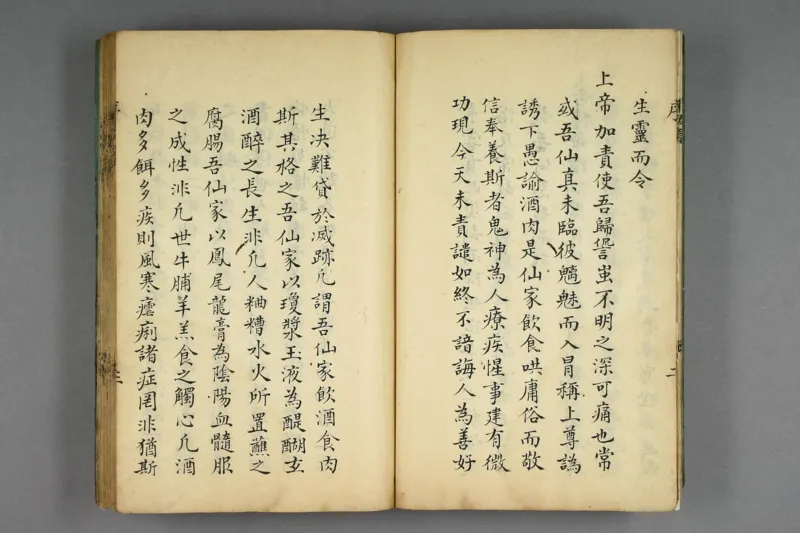 生靈而令
上帝加責使吾歸譽蚩不明之深可痛也常
或吾仙真未臨彼魑魅而入冒稱上尊譌
誘下愚諭酒肉是仙家飲食哄庸俗而敬
信奉養斯者鬼神為人療疾惺事建有微
功現今天未責譴如終不諳誨人為善好
生决難貸於滅跡凢謂吾仙家飲酒食肉
斯其格之吾仙家以瓊漿玉液為醍醐玄
酒醉之長生非凢人粬糟水火所置蘸之
腐腸吾仙家以鳳尾龍膏為陰陽血髓服
之成性非凢世牛脯羊羔食之觸心凢酒
肉多餌多疾則風寒瘧痢諸症罔非猶斯
序
二